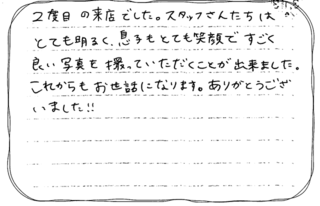 2度目の来店でした。スタッフさんたちは
とても明るく、息子もとても笑顔ですごく
良い写真を撮っていただくことが出来ました。
これからもお世話になります。ありがとうござ
いました!!